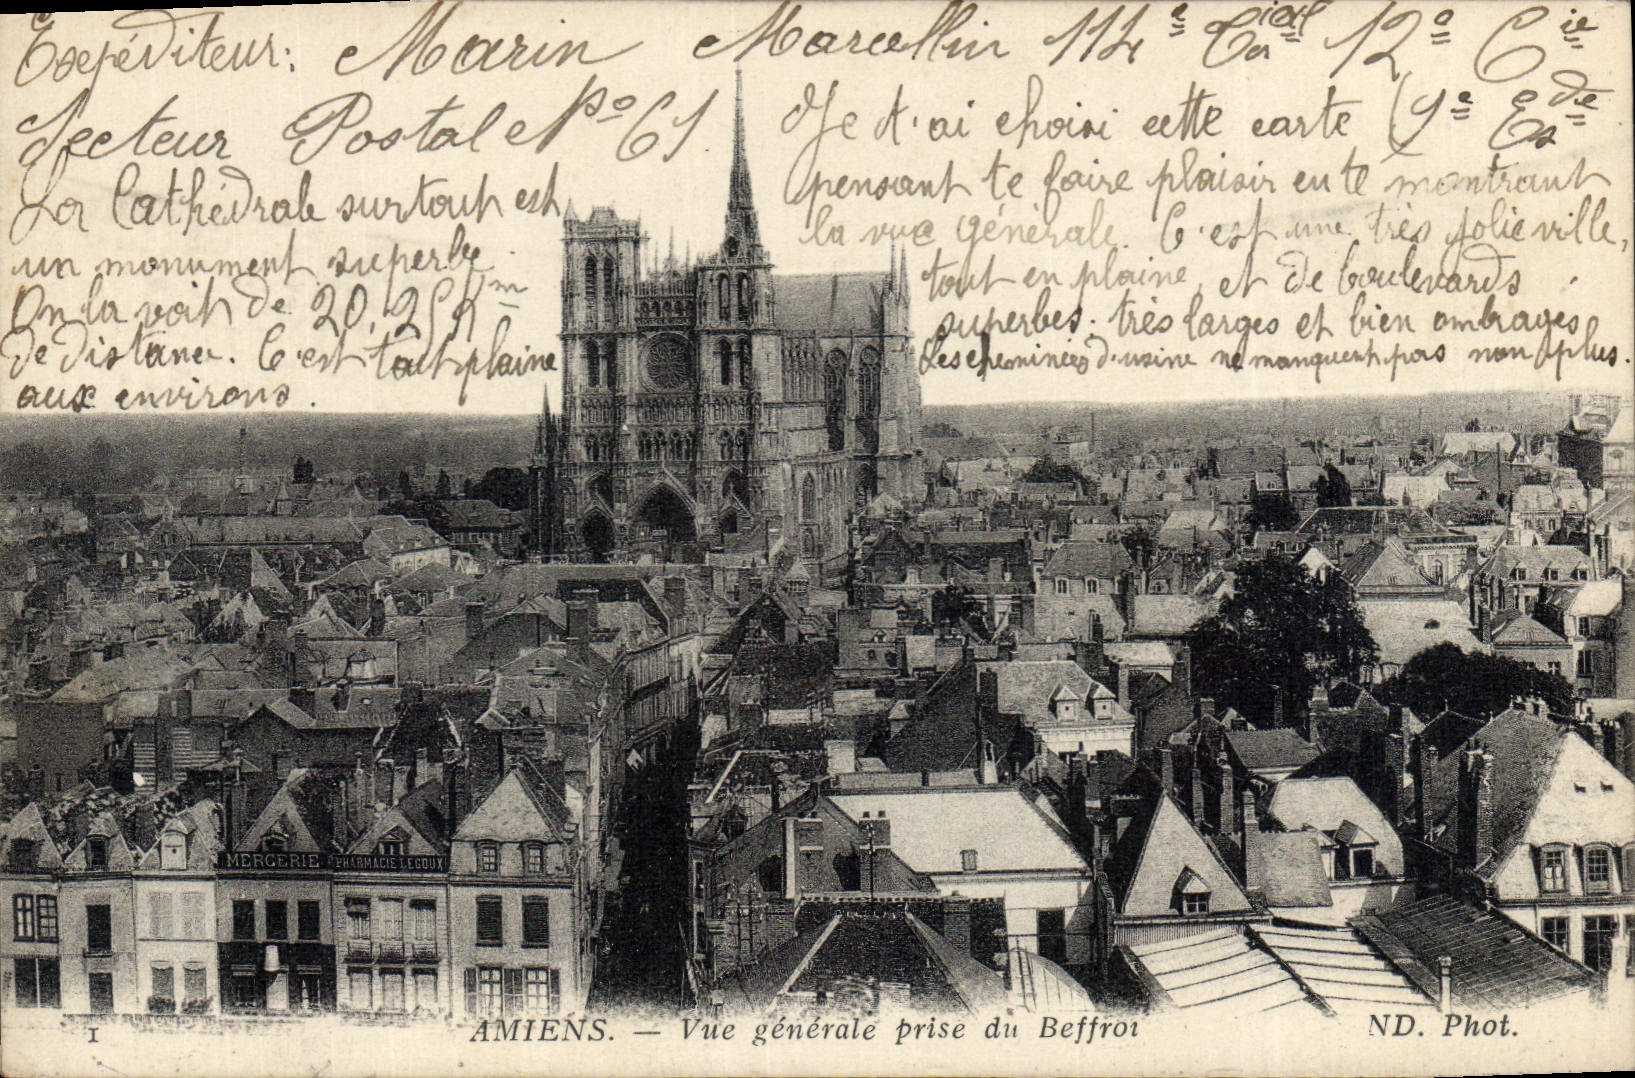 Expéditeur: Marin Marcellin 114e Eial 12e Cie
Secteur Postal No 61. (9e Ede
La Cathédrale surtout est
un monument superbe.
On la voit de 20, 25 Km
de distance. C'est tout plaine
aux environs.
Je t'ai choisi cette carte
pensant te faire plaisir en te montrant
la vue générale. C'est une très jolie ville,
tout en plaine, et de boulevards
superbes. très larges et bien ombragés
Les cheminées d'usine ne manquent pas non plus.
MERCERIE
PHARMACIE LEGOUX
1 AMIENS. — Vue générale prise du Beffroi ND. Phot.